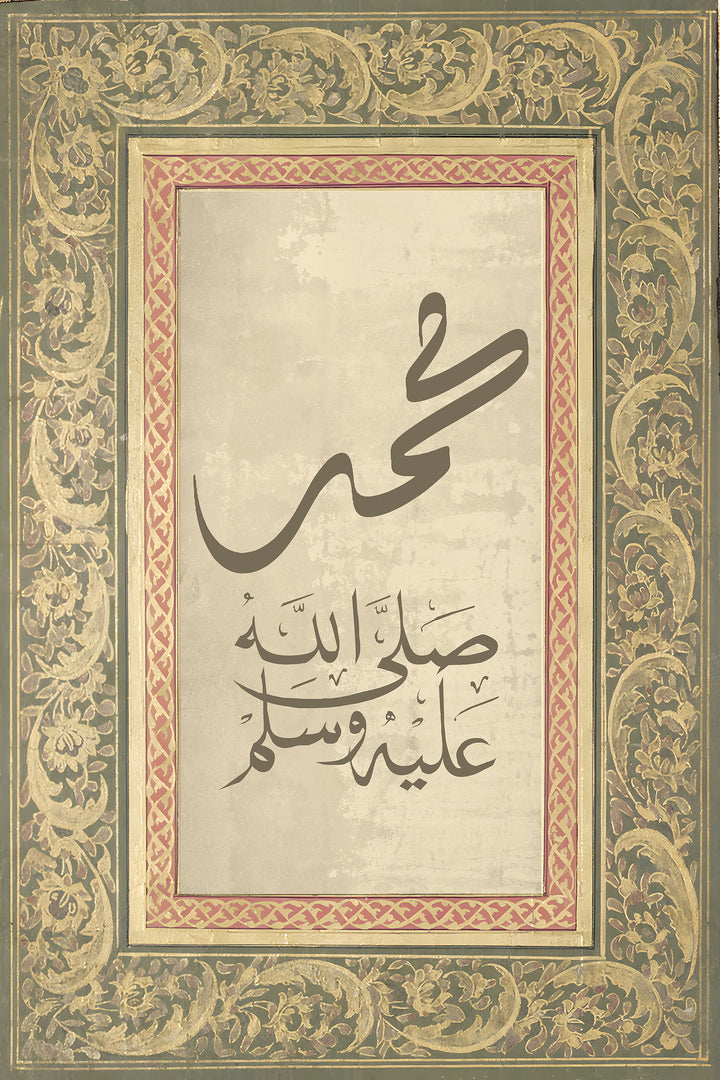 محمد
صَلَّى اللَّهُ
عَلَيْهِ وَسَلَّمْ